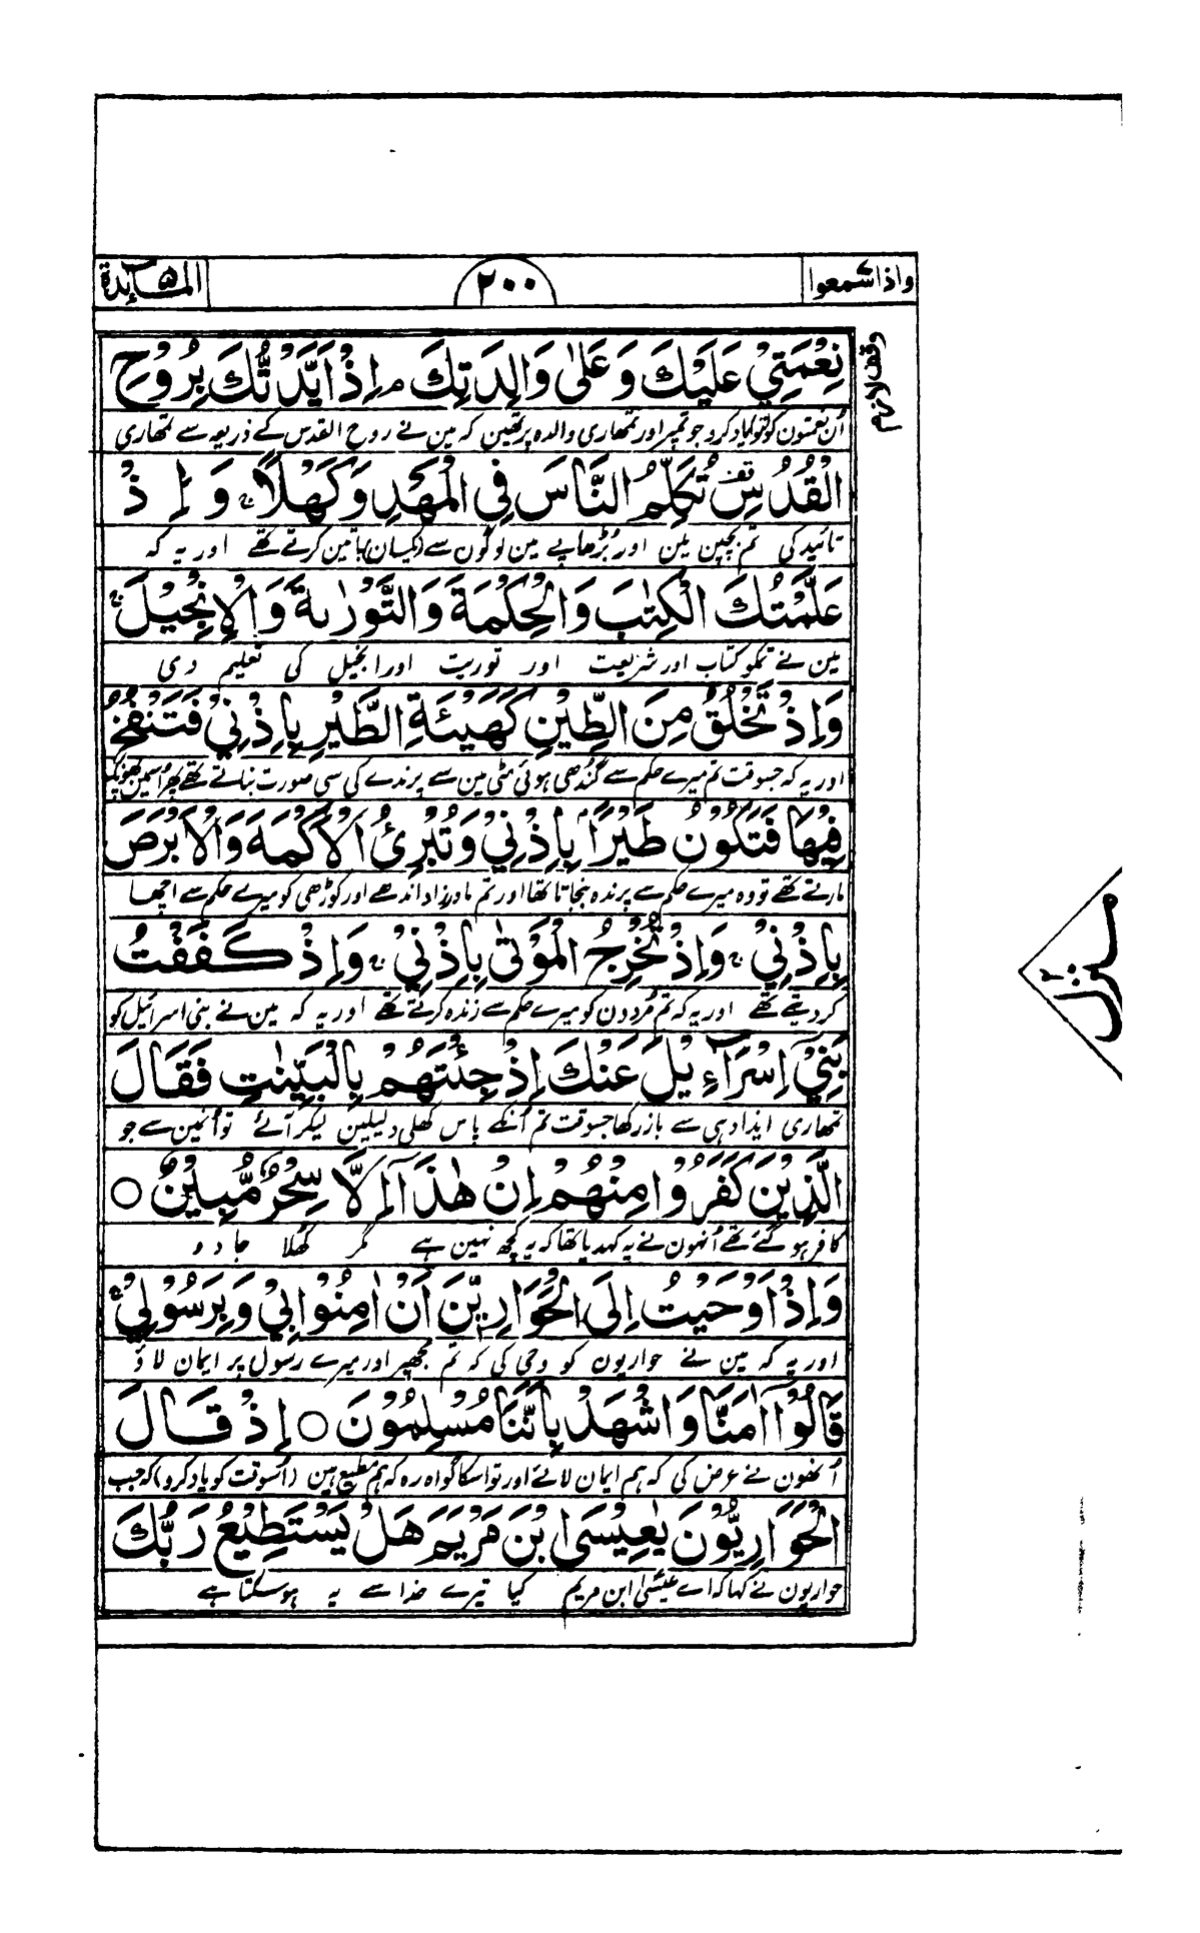 واذا سمعوا ٢٠٠ المآئدة ٥
وقف لازم
نِعْمَتِيْ عَلَيْكَ وَعَلٰى وَالِدَتِكَ مـ اِذْ اَيَّدْتُّكَ بِرُوْحِ
اُن نعمتون کو تو یاد کرو جو تمپر اور تمھاری والدہ پر تھین کہ مین نے روح القدس کے ذریعہ سے تمھاری
الْقُدُسِ قف تُكَلِّمُ النَّاسَ فِي الْمَهْدِ وَكَهْلًا ۚ وَاِذْ
تائید کی تم بچپن مین اور بُڑھاپے مین لوگون سے (یکسان) باتین کرتے تھے اور یہ کہ
عَلَّمْتُكَ الْكِتٰبَ وَالْحِكْمَةَ وَالتَّوْرٰىةَ وَالْاِنْجِيْلَ ۚ
مین نے تمکو کتاب اور شریعت اور توریت اور انجیل کی تعلیم دی
وَاِذْ تَخْلُقُ مِنَ الطِّيْنِ كَهَيْئَةِ الطَّيْرِ بِاِذْنِيْ فَتَنْفُخُ
اور یہ کہ جسوقت تم میرے حکم سے گُندھی ہوئی مٹی مین سے پرندے کی سی صورت بناتے تھے پھر اُسمین پھونک
فِيْهَا فَتَكُوْنُ طَيْرًا بِاِذْنِيْ وَتُبْرِئُ الْاَكْمَهَ وَالْاَبْرَصَ
مارتے تھے تو وہ میرے حکم سے پرندہ بنجاتا تھا اور تم مادرزاد اندھے اور کوڑھی کو میرے حکم سے اچھا
بِاِذْنِيْ ۚ وَاِذْ تُخْرِجُ الْمَوْتٰى بِاِذْنِيْ ۚ وَاِذْ كَفَفْتُ
کر دیتے تھے اور یہ کہ تم مُردون کو میرے حکم سے زندہ کرتے تھے اور یہ کہ مین نے بنی اسرائیل کو
بَنِيْٓ اِسْرَآءِيْلَ عَنْكَ اِذْ جِئْتَهُمْ بِالْبَيِّنٰتِ فَقَالَ
تمھاری ایذادہی سے باز رکھا جسوقت تم اُنکے پاس کھلی دلیلین لیکر آئے تو اُنمین سے جو
الَّذِيْنَ كَفَرُوْا مِنْهُمْ اِنْ هٰذَآ اِلَّا سِحْرٌ مُّبِيْنٌ ○
کافر ہو گئے تھے اُنہون نے یہ کہدیا تھا کہ یہ کچھ نہین ہے مگر کھُلا جادو
وَاِذْ اَوْحَيْتُ اِلَى الْحَوَارِيّٖنَ اَنْ اٰمِنُوْا بِيْ وَبِرَسُوْلِيْ ۚ
اور یہ کہ مین نے حواریون کو وحی کی کہ تم مجھپر اور میرے رسول پر ایمان لاؤ
قَالُوْٓا اٰمَنَّا وَاشْهَدْ بِاَنَّنَا مُسْلِمُوْنَ ○ اِذْ قَالَ
اُنھون نے عرض کی کہ ہم ایمان لائے اور تو اسکا گواہ رہ کہ ہم مطیع ہین (اُسوقت کو یاد کرو) کہ جب
الْحَوَارِيُّوْنَ يٰعِيْسَى ابْنَ مَرْيَمَ هَلْ يَسْتَطِيْعُ رَبُّكَ
حواریون نے کہا کہ اے عیسٰی ابن مریم کیا تیرے خدا سے یہ ہو سکتا ہے
منزل ٢